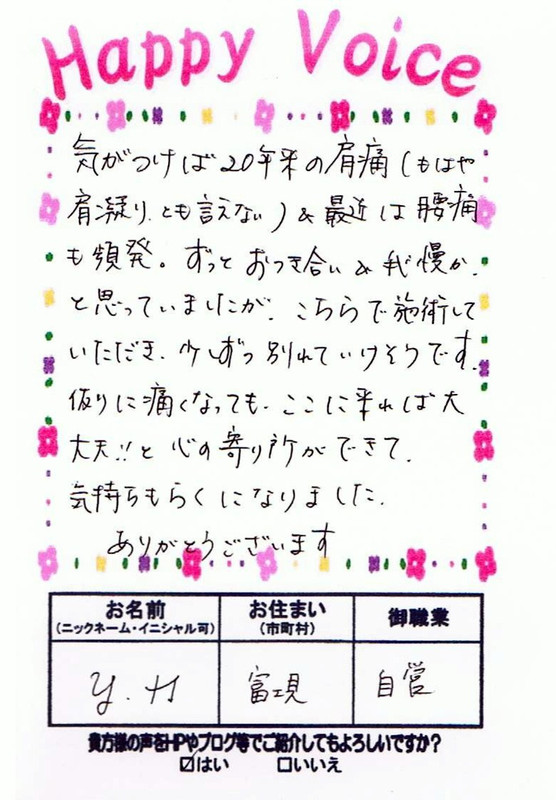 Happy Voice
気がつけば20年来の肩痛(もはや
肩凝り、とも言えない)&最近は腰痛
も頻発。ずっとおつき合い&我慢か、
と思っていましたが、こちらで施術して
いただき、少しずつ別れていけそうです。
仮りに痛くなっても、ここに来れば大
大夫!!と心の寄り所ができて、
気持ちもらくになりました。
ありがとうございます
お名前 お住まい 御職業
(ニックネーム・イニシャル可) (市町村)
Y.H 富士見 自営
貴方様の声をHPやブログ等でご紹介してもよろしいですか?
☑はい □いいえ